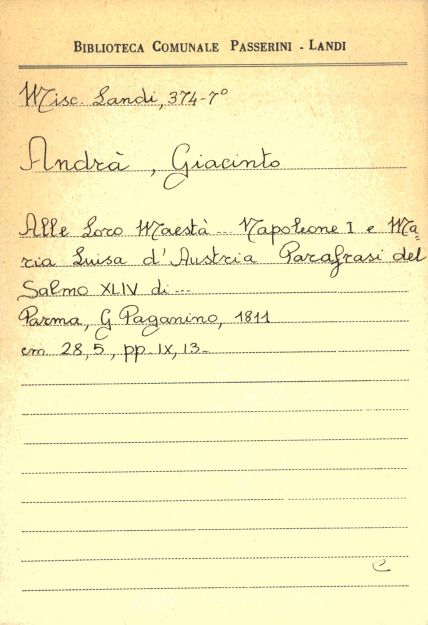 BIBLIOTECA COMUNALE PASSERINI - LANDI
Misc. Landi, 374-7°
Andrà, Giacinto
Alle Loro Maestà --- Napoleone I e Ma=
ria Luisa d'Austria Parafrasi del
Salmo XLIV di ---
Parma, G Paganino, 1811
cm 28,5, pp. IX, 13-
C